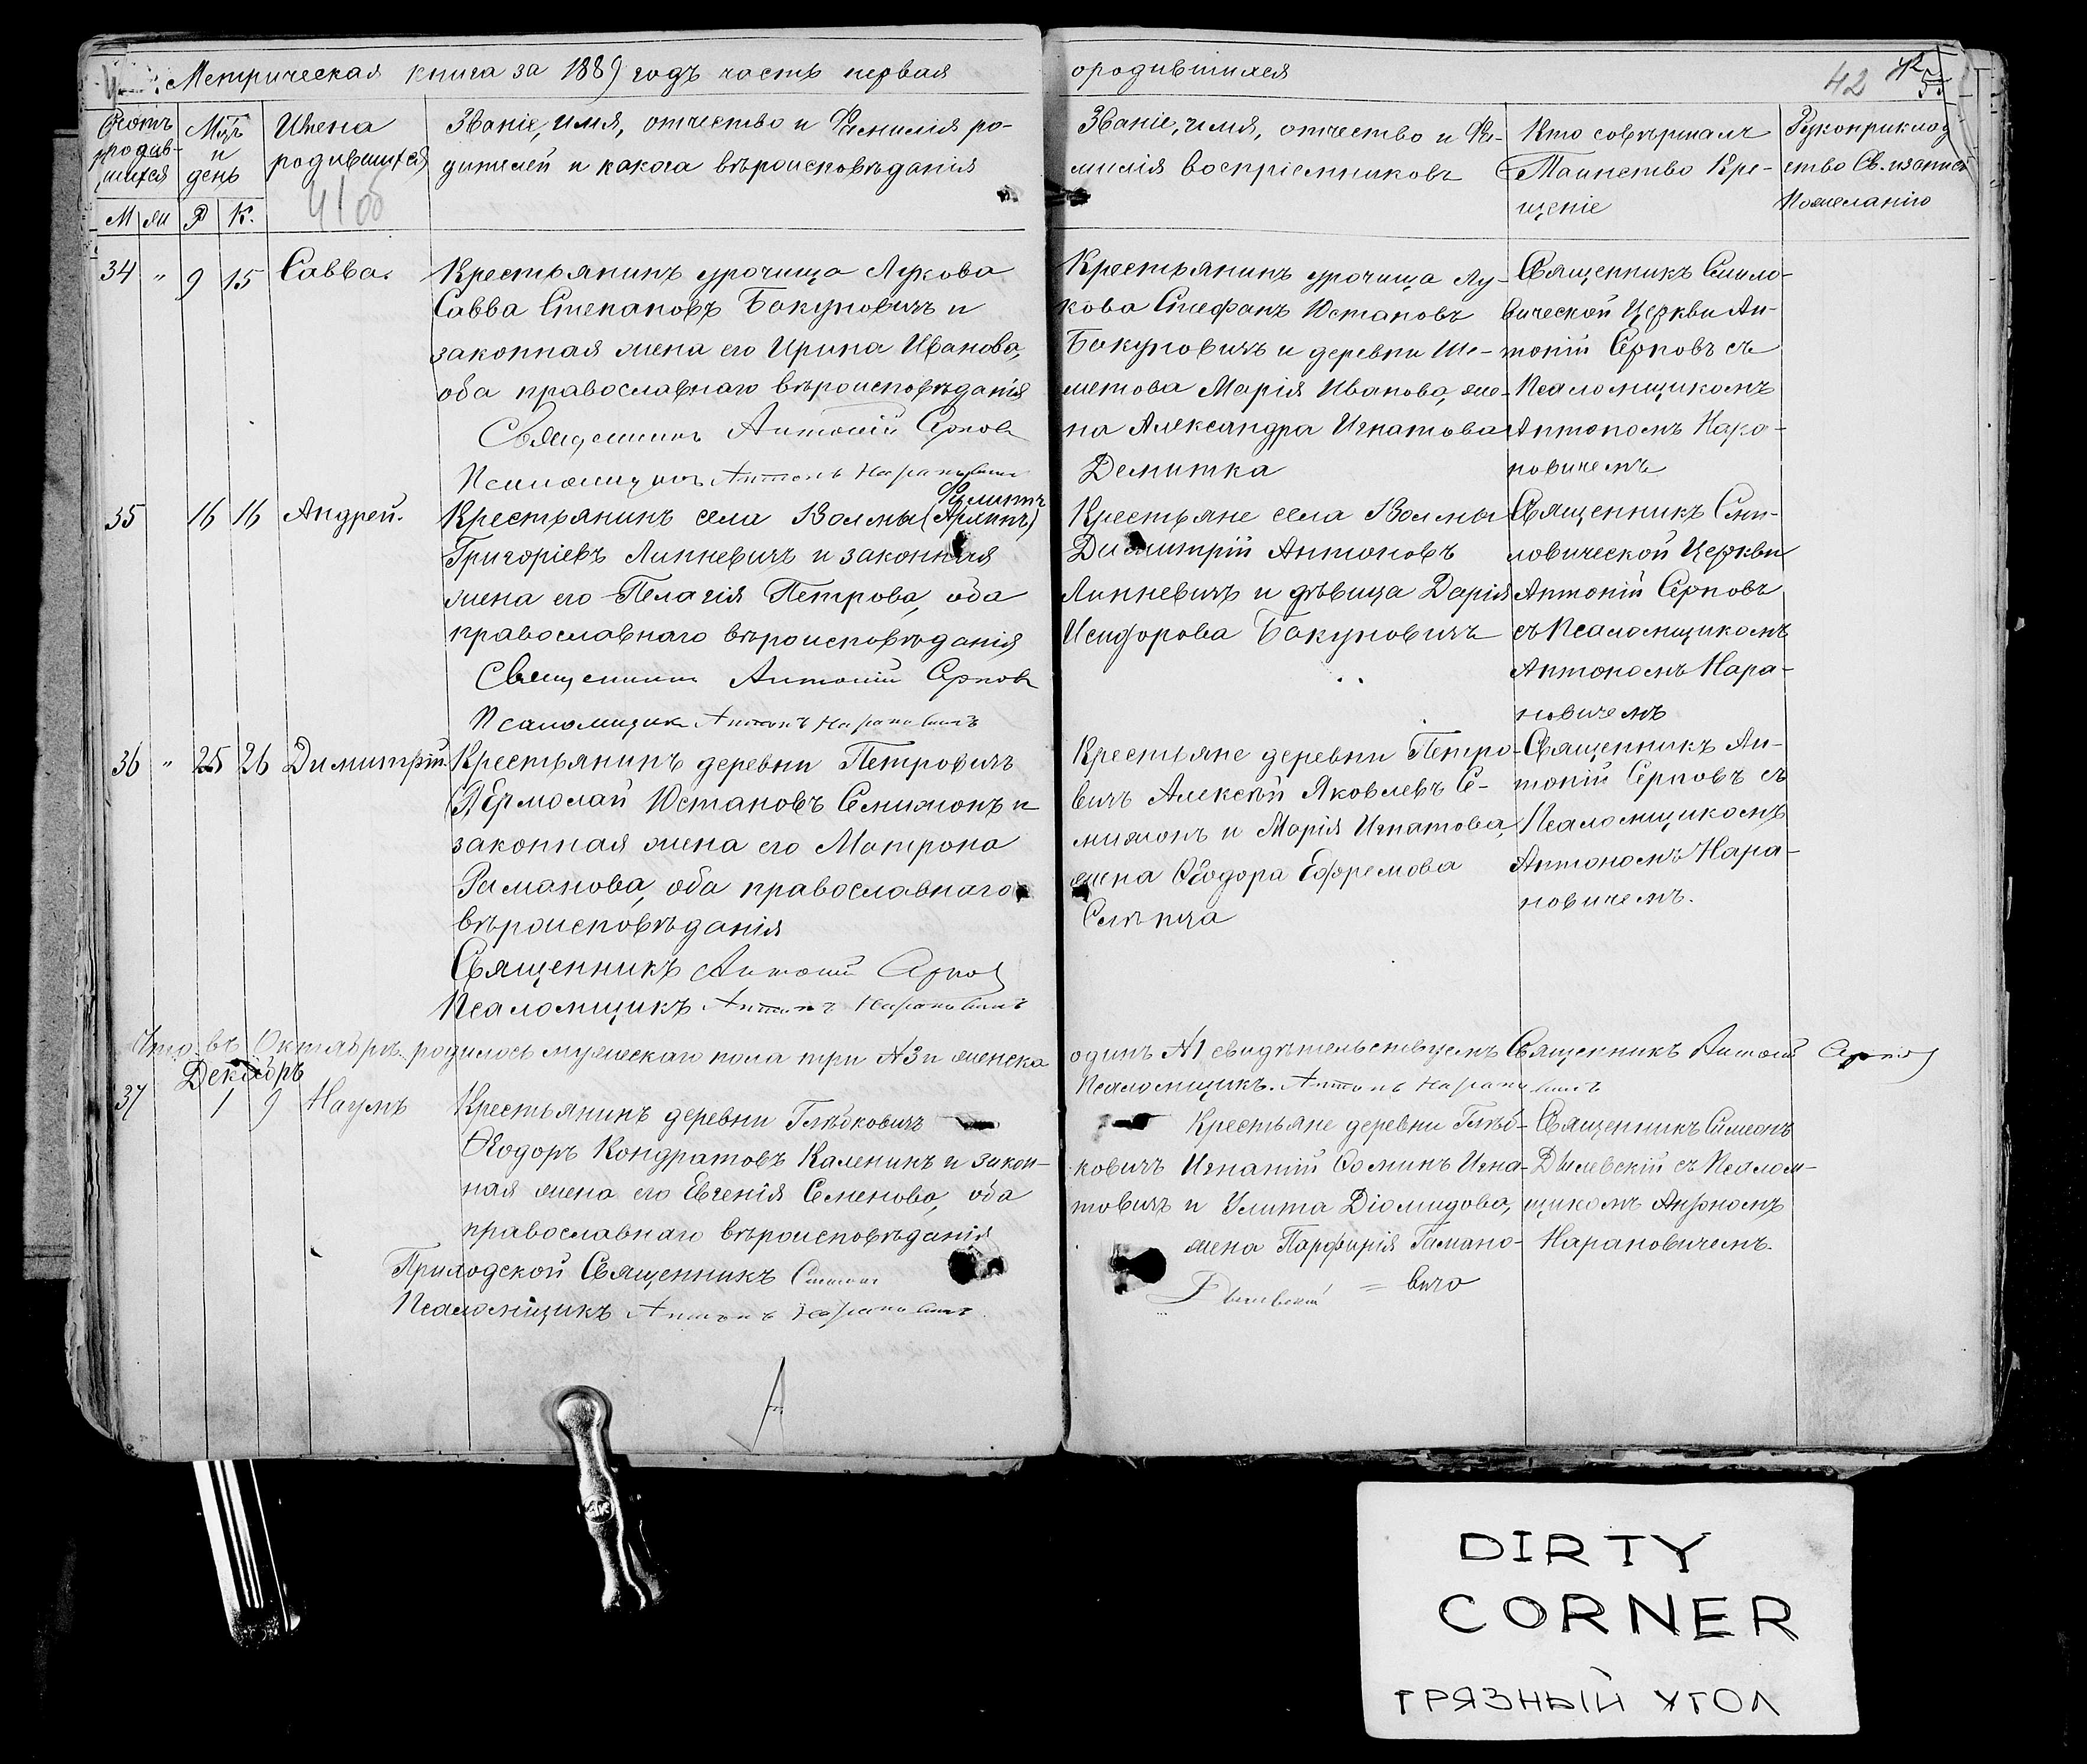 Метрическая книга за 1889 годъ часть первая
ородившихся
42
Счотъ родив-шихся
Мцъ и день
Имена родившихся
41 об
Званіе, имя, отчество и Фамилія ро-
дителей и какога вѣроисковѣданія
Званіе, имя, отчество и Фа-
милія воспріемниковъ
Кто совѣршалъ
Таинство Кре-
щеніе
Рукоприклад
ство Св. изаписи
Пожеланію
М Ж Р К.
34 " 9 15 Савва.
Крестьянинъ урочища Лукова
Савва Степановъ Бакуновичъ и
законная жена его Ирина Иванова,
оба православнаго вѣроисповѣданія
Священникъ Антоній Серновъ
Псаломщикъ Антонъ Нарановичъ
Крестьянинъ урочища Лу-
кова Стефанъ Юстановъ
Бакуновичъ и деревни Ше-
метова Марія Иванова, же-
на Александра Игнатова
Демитка
Священникъ Смило-
вической Церкви Ан-
тоній Серновъ съ
Псаломщикомъ
Антономъ Нара-
новичемъ
35 16 16 Андрей.
Крестьянинъ села Волмы (Армипъ)
Филиппъ
Григоріевъ Липневичъ и законная
жена его Пелагія Петрова, оба
православнаго вѣроисповѣданія
Священникъ Антоній Серновъ
Псаломщикъ Антонъ Нарановичъ
Крестьяне села Волмы
Димитрій Антоновъ
Липневичъ и дѣвица Дарія
Исидорова Бакуновичъ
Священникъ Сми-
ловической Церкви
Антоній Серновъ
съ Псаломщикомъ
Антономъ Нара-
новичемъ
36 " 25 26 Димитрій.
Крестьянинъ деревни Петровичъ
Ермолай Юстановъ Семижонъ и
законная жена его Матрона
Романова, оба православнаго
вѣроисповѣданія
Священникъ Антоній Серновъ
Псаломщикъ Антонъ Нарановичъ
Крестьяне деревни Петро-
вичъ Алексѣй Яковлевъ Се-
мижонъ и Марія Игнатова,
жена Ѳеодора Ефремова
Слѣпца
Священникъ Ан-
тоній Серновъ съ
Псаломщикомъ
Антономъ Нара-
новичемъ.
Что въ Октябрѣ родилось мужескаго пола три №3 и женска
одинъ №1 свидѣтельствуемъ Священникъ Антоній Серновъ
Псаломщикъ. Антонъ Нарановичъ
Декабрь
37 1 9 Наумъ
Крестьянинъ деревни Глѣбковичъ
Ѳеодоръ Кондратовъ Каленикъ и закон-
ная жена его Евгенія Семенова, оба
православнаго вѣроисповѣданія
Приходской Священникъ Симеонъ
Дылевскій
Псаломщикъ Антонъ Нарановичъ
Крестьяне деревни Глѣб-
ковичъ Игнатій Ѳоминъ Игна-
товичъ и Улита Діомидова,
жена Парфирія Гамано-
= вича
Священникъ Симеонъ
Дылевскій съ Псалом-
щикомъ Антономъ
Нарановичемъ.
DIRTY
CORNER
ГРЯЗНЫЙ УГОЛ